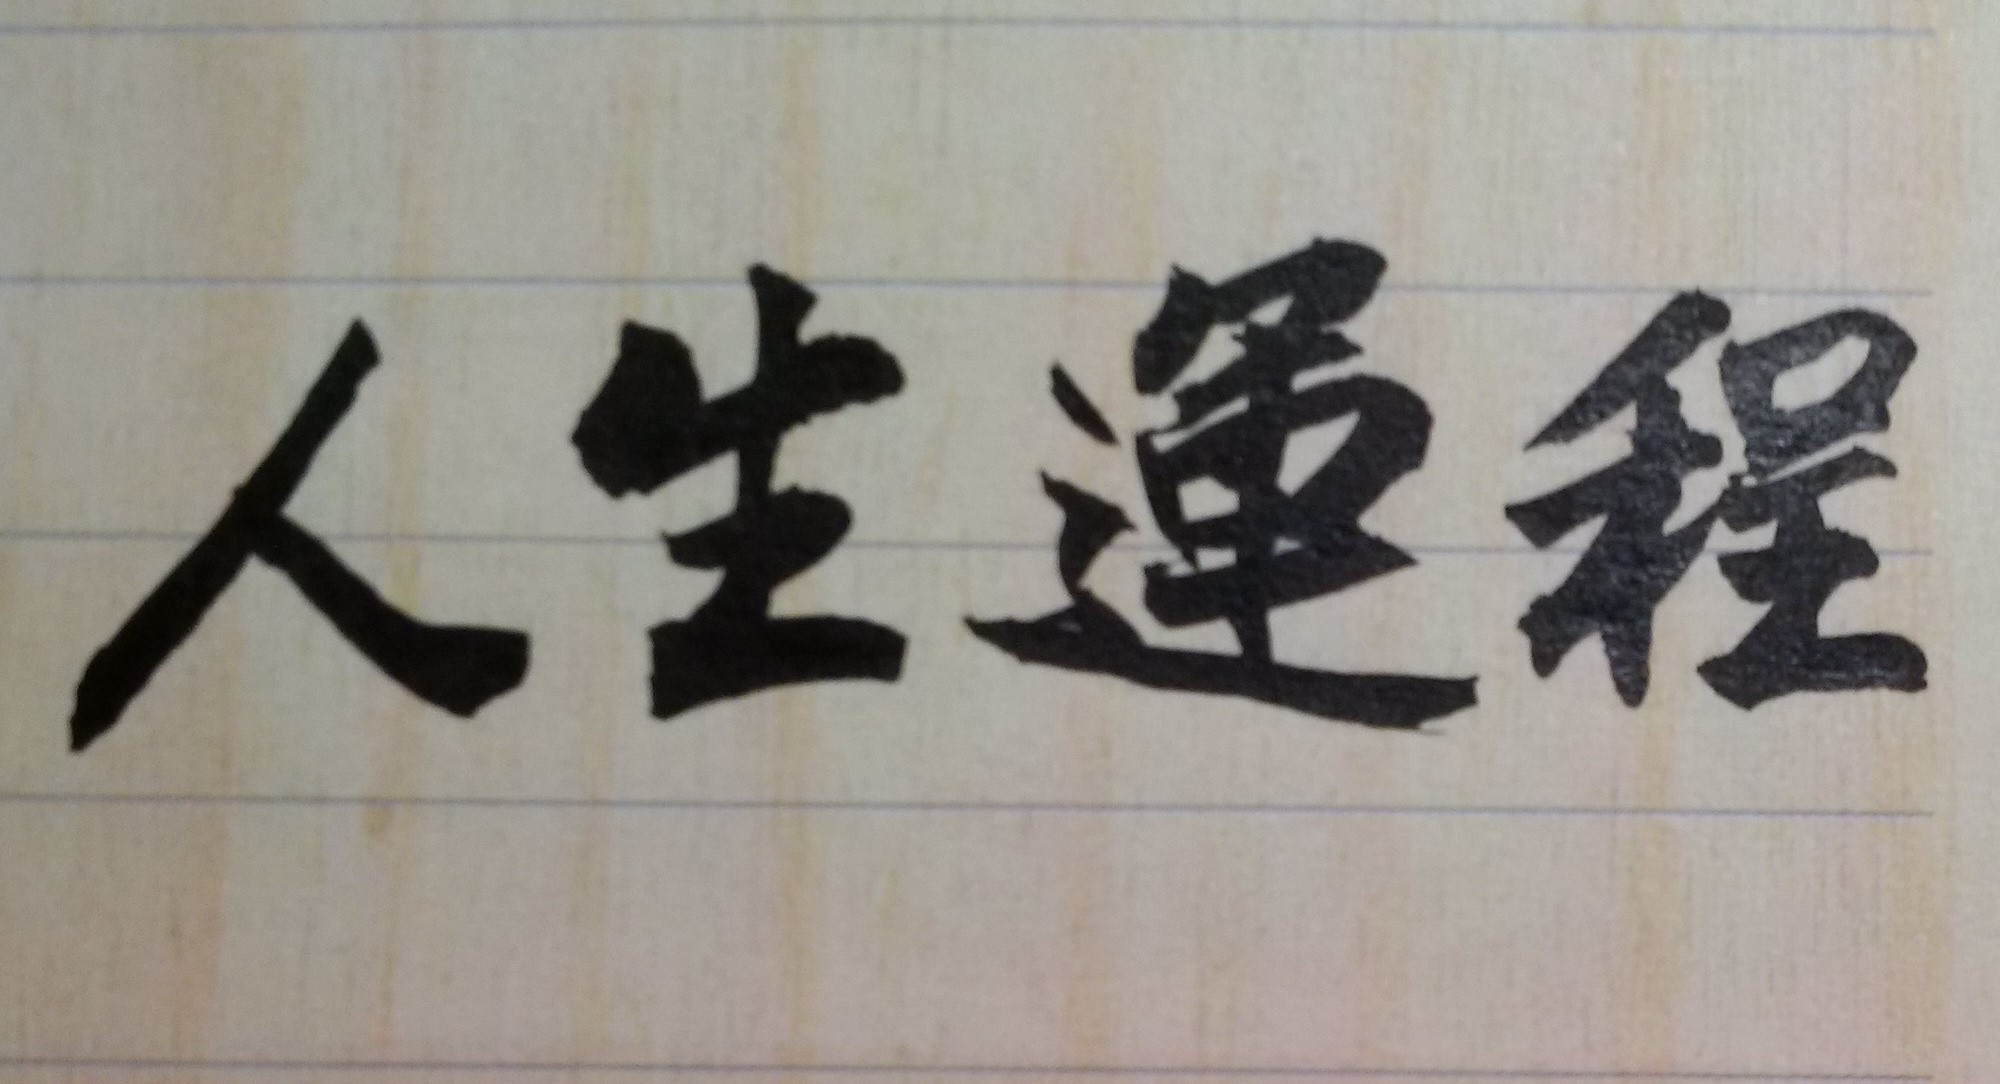 人生運程